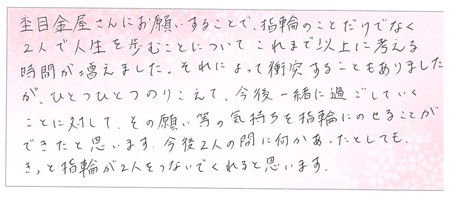 杢目金屋さんにお願いすることで、指輪のことだけでなく
2人で人生を歩むことについてこれまで以上に考える
時間が増えました。それによって衝突することもありました
が、ひとつひとつのりこえて、今後一緒に過ごしていく
ことに対して、その願い等の気持ちを指輪にのせることが
できたと思います。今後2人の間に何かあったとしても、
きっと指輪が2人をつないでくれると思います。